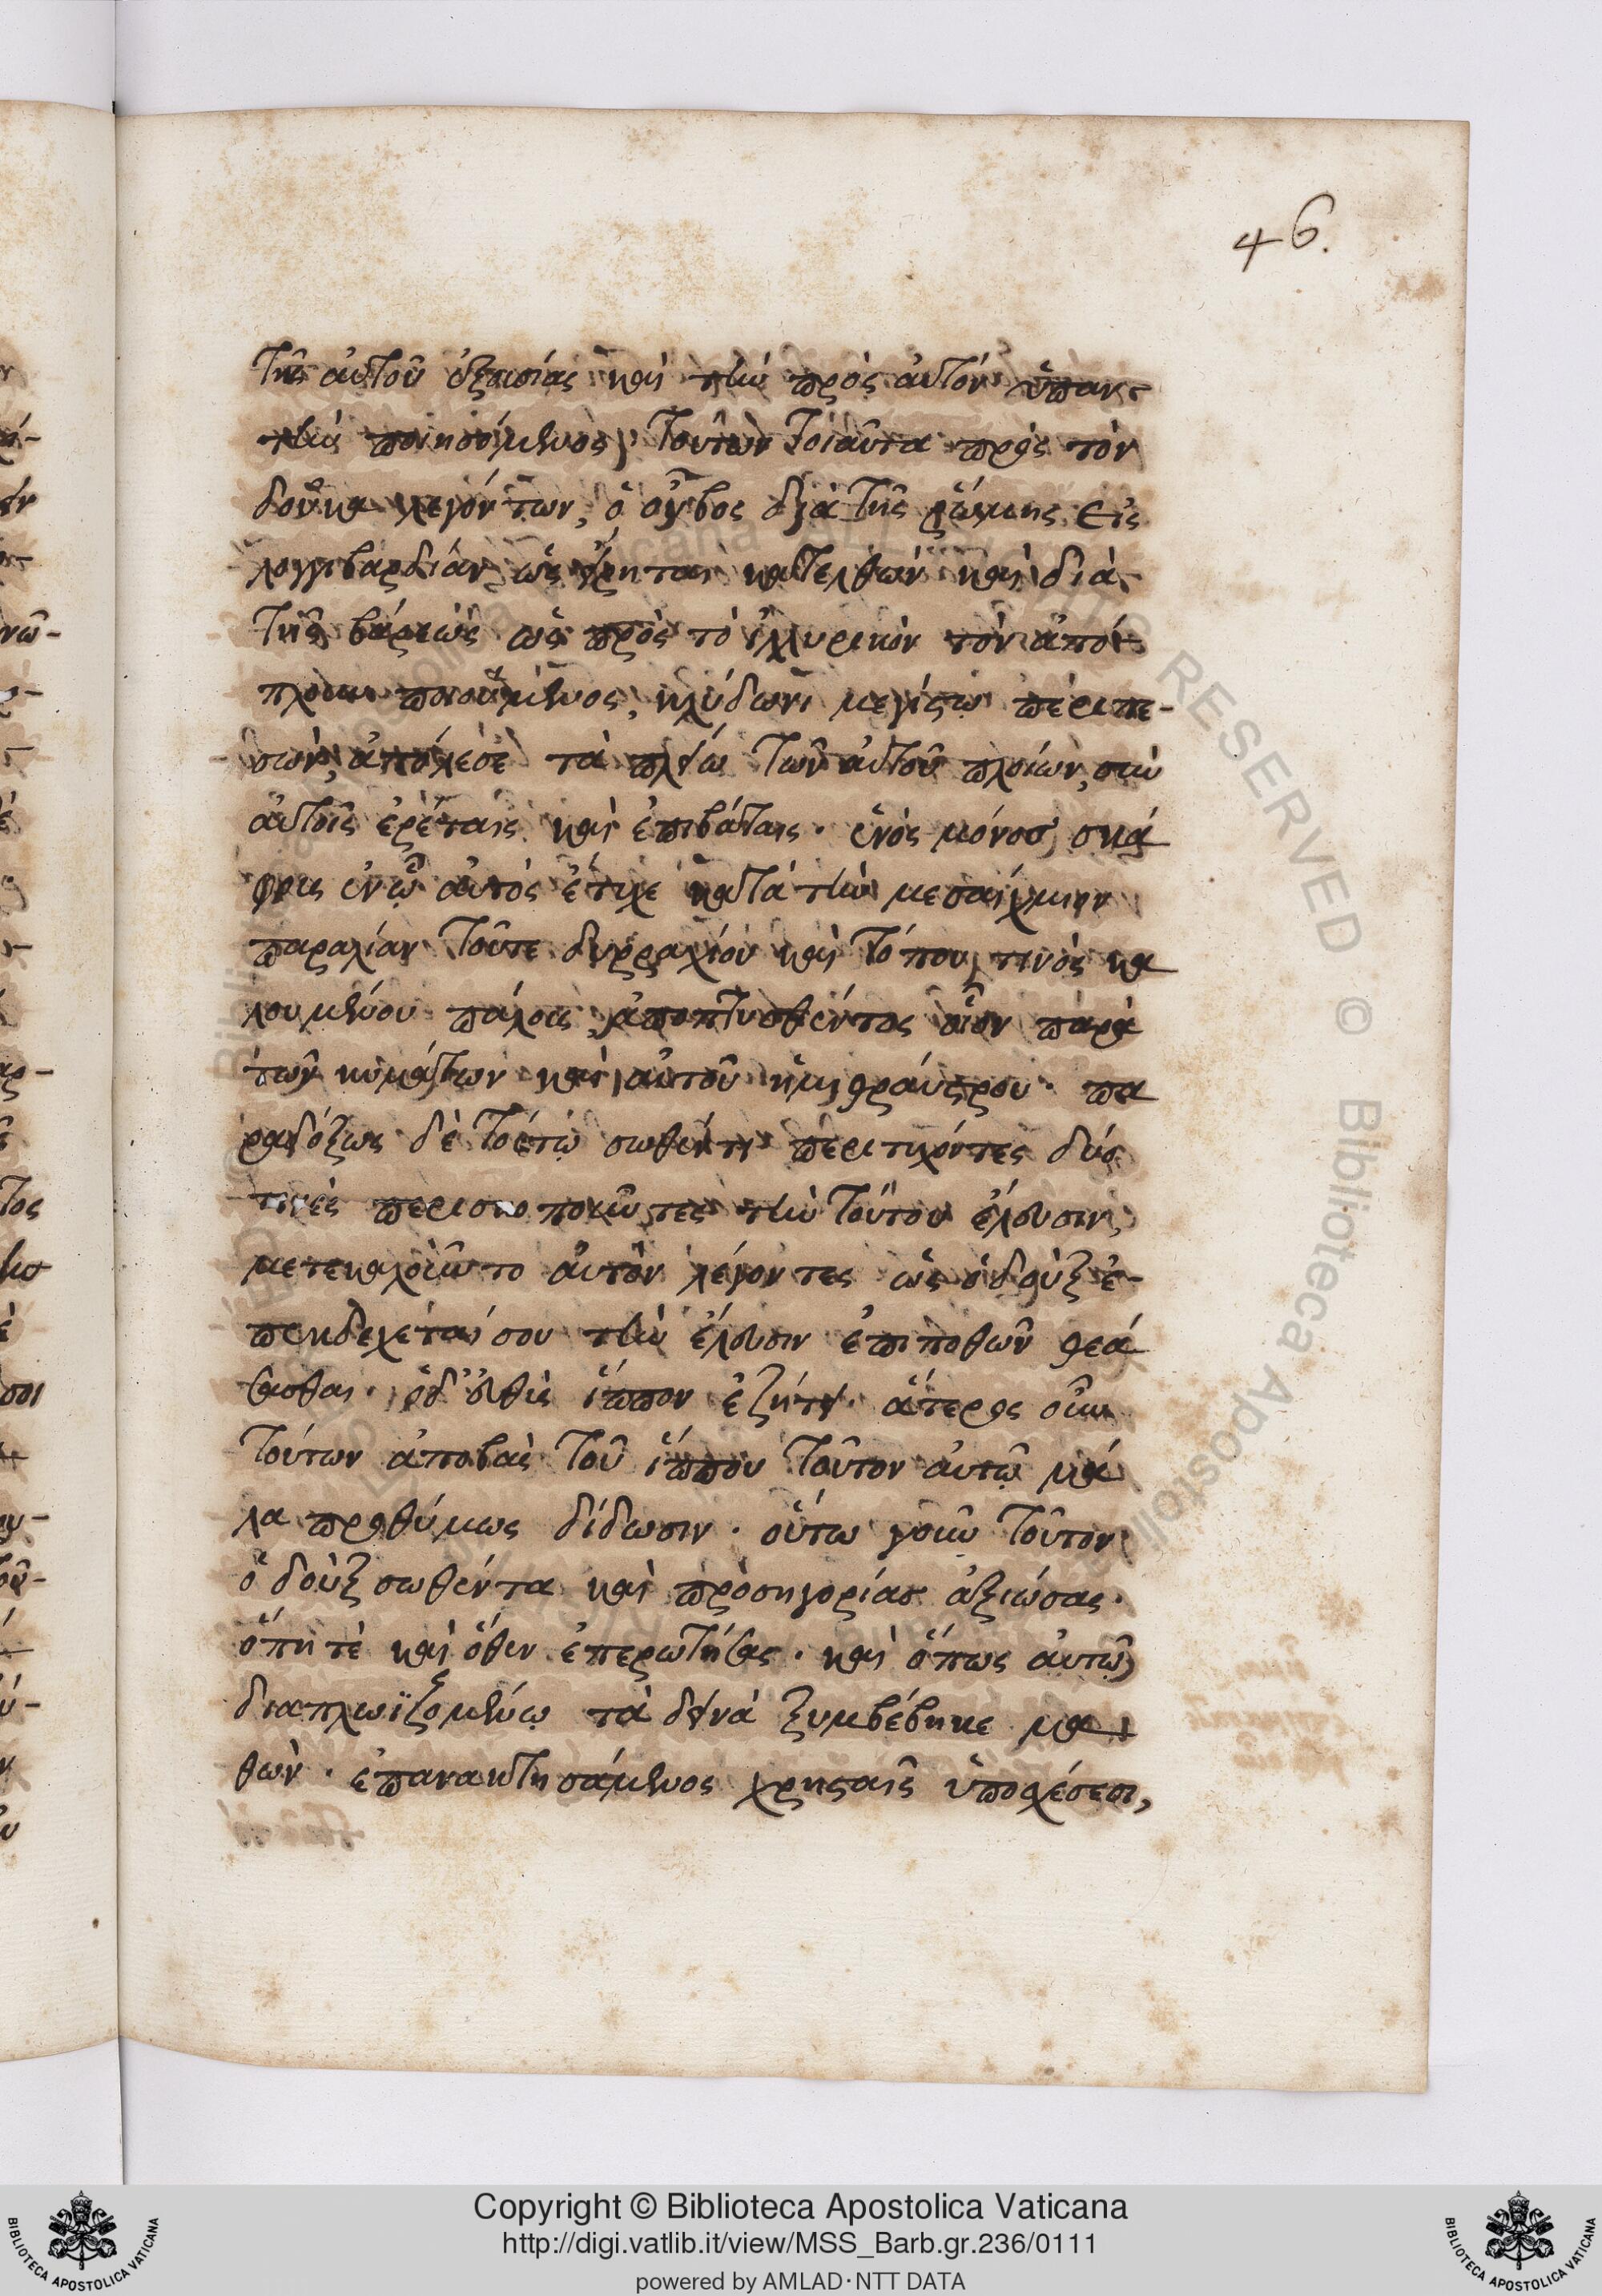 46.
τῆς αὐτοῦ ἐξουσίας καὶ τὴν πρὸς αὐτὸν ὑπαν-
τὴν ποιησόμενος, τούτων τοιαῦτα πρὸς τὸν
δοῦκα λεγόντων, ὁ οὖβος διὰ τῆς ῥώμης εἰς
λογγιβαρδίαν ὡς εἴρηται κατελθὼν καὶ διὰ
τῆς βάρεως ὡς πρὸς τὸ ἰλλυρικὸν τὸν ἀπό-
πλουν ποιούμενος, κλύδωνι μεγίστῳ περιπε-
σὼν, ἀπόλεσε τὰ πλείω τῶν αὐτοῦ πλοίων, σὺν
αὐτοῖς ἐρέταις καὶ ἐπιβάταις. ἑνὸς μόνου σκά
φους ἐν ᾧ αὐτὸς ἔτυχε κατὰ τὴν μεσαίχμιον
παραλίαν τοῦτε δυρραχίου καὶ τόπου τινὸς κα
λουμένου πάλους, ἀποπτυσθέντος οἷον παρὰ
τῶν κυμάτων καὶ αὐτοῦ ἡμιθραύστου. πα
ραδόξως δὲ τούτῳ σωθέντι περιτυχόντες δύο
τινὲς περισκοποῦντες τὴν τούτου ἔλευσιν,
μετεκαλοῦντο αὐτὸν λέγοντες ὡς ὁ δοὺξ ἐ-
πεκδέχεταί σου τὴν ἔλευσιν ἐπιποθῶν θεά
σασθαι. ὁ δ' εὐθὺς ἵππον ἐζήτει. ἅτερος οὖν
τούτων ἀποβὰς τοῦ ἵππου τοῦτον αὐτῷ μά
λα προθύμως δίδωσιν. οὕτω γοῦν τοῦτον
ὁ δοὺξ σωθέντα καὶ προσηγορίας ἀξιώσας.
ὅπη τὲ καὶ ὅθεν ἐπερωτήσας. καὶ ὅπως αὐτῷ
διαπλωϊζομένῳ τὰ δεινὰ ξυμβέβηκε μα
θὼν. ἐπανακτησάμενος χρησταῖς ὑποσχέσεσι,
Copyright © Biblioteca Apostolica Vaticana
http://digi.vatlib.it/view/MSS_Barb.gr.236/0111
powered by AMLAD·NTT DATA